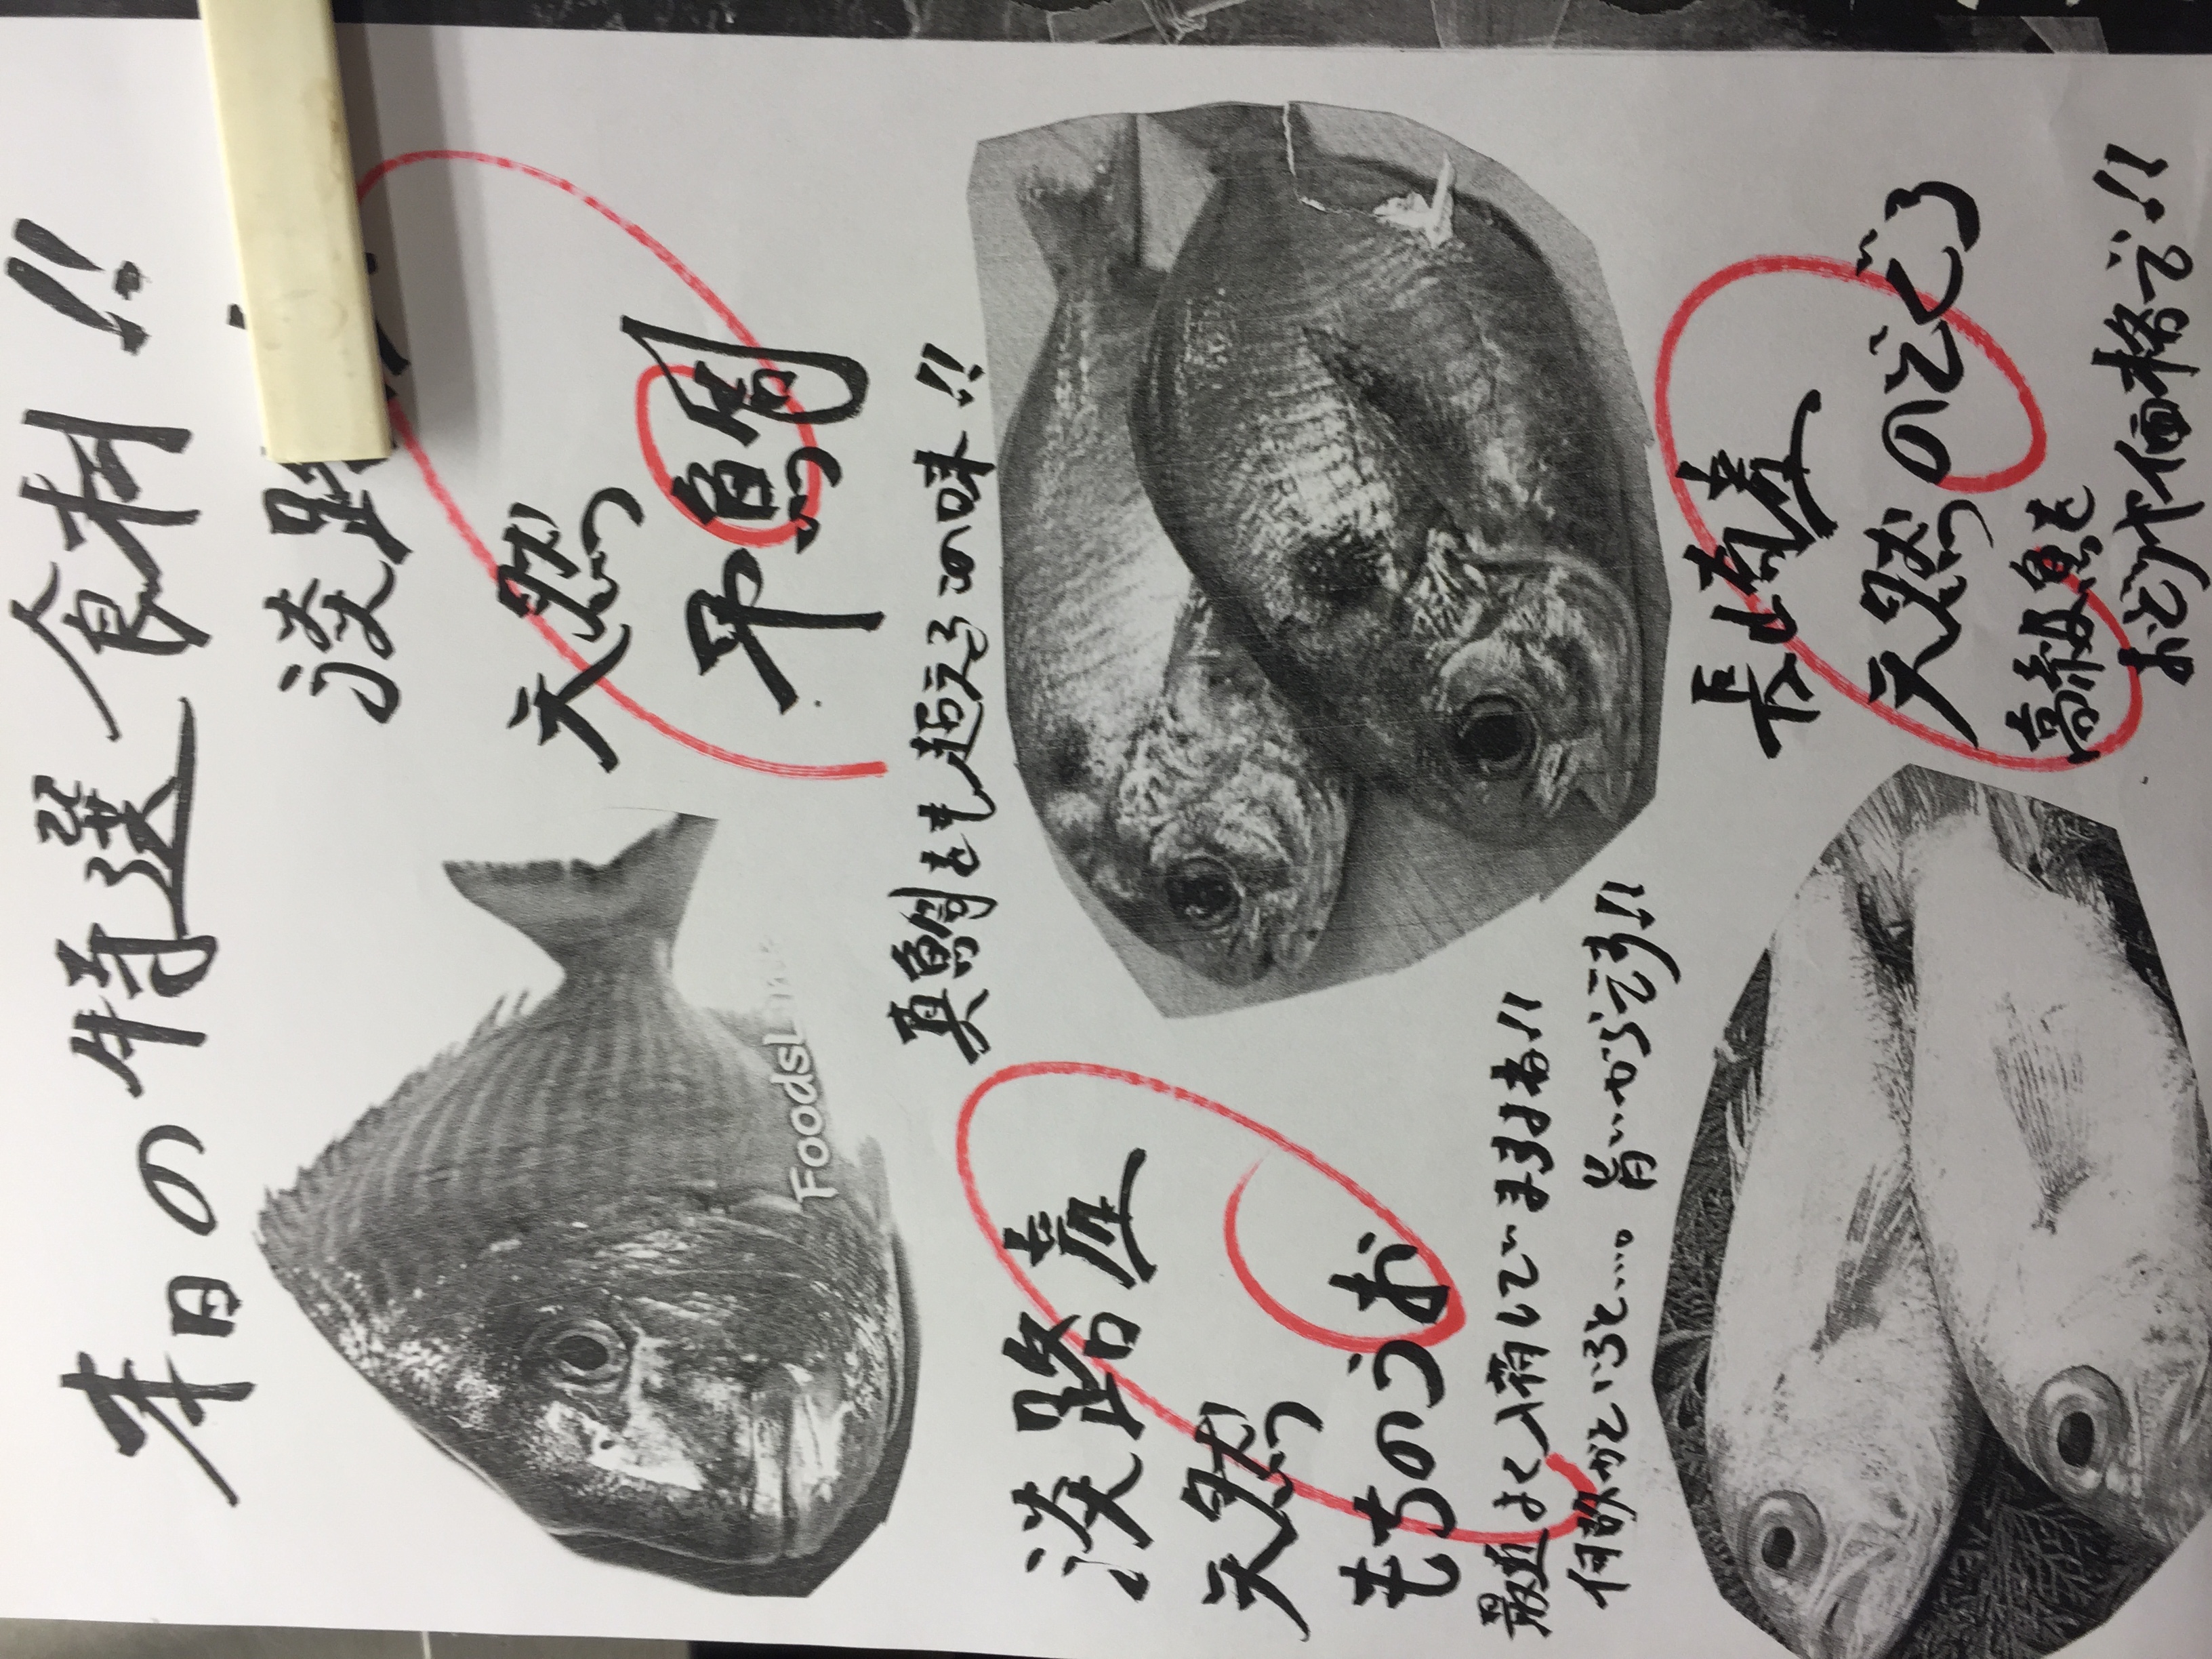 本日の特選食材!!
淡路
天然
平鯛
真鯛をも超えるこの味!!
淡路産
天然
もちのうお
最近よく入荷していますよね!!
何故かというと.... 旨いからです!!
長崎産
天然のどぐろ
高級魚を
おどろき価格で!!
FoodsL